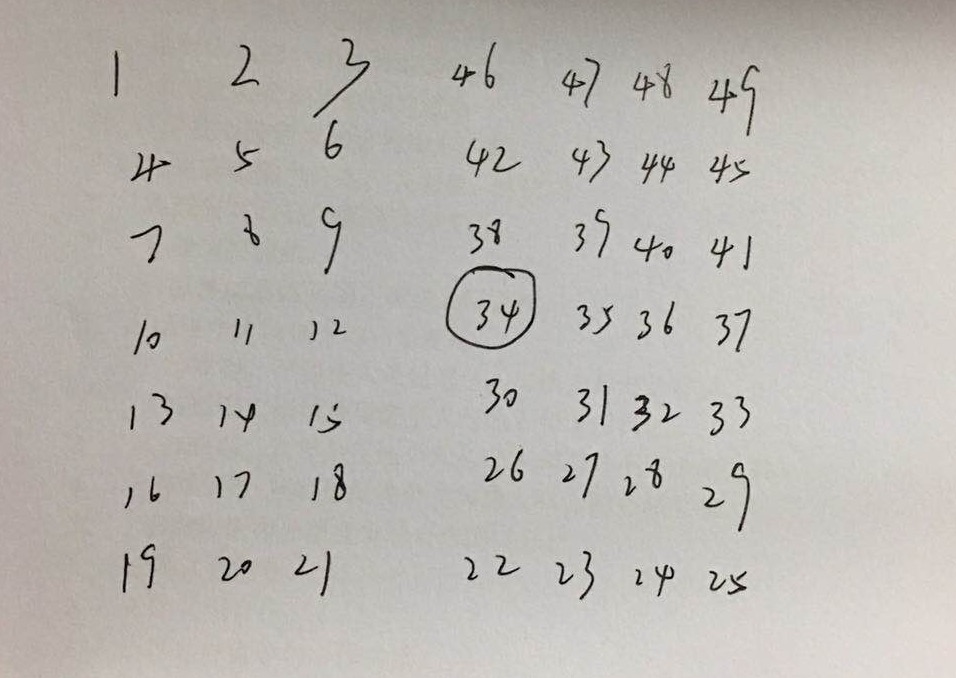 1 2 3 46 47 48 49
4 5 6 42 43 44 45
7 8 9 38 39 40 41
10 11 12 34 35 36 37
13 14 15 30 31 32 33
16 17 18 26 27 28 29
19 20 21 22 23 24 25